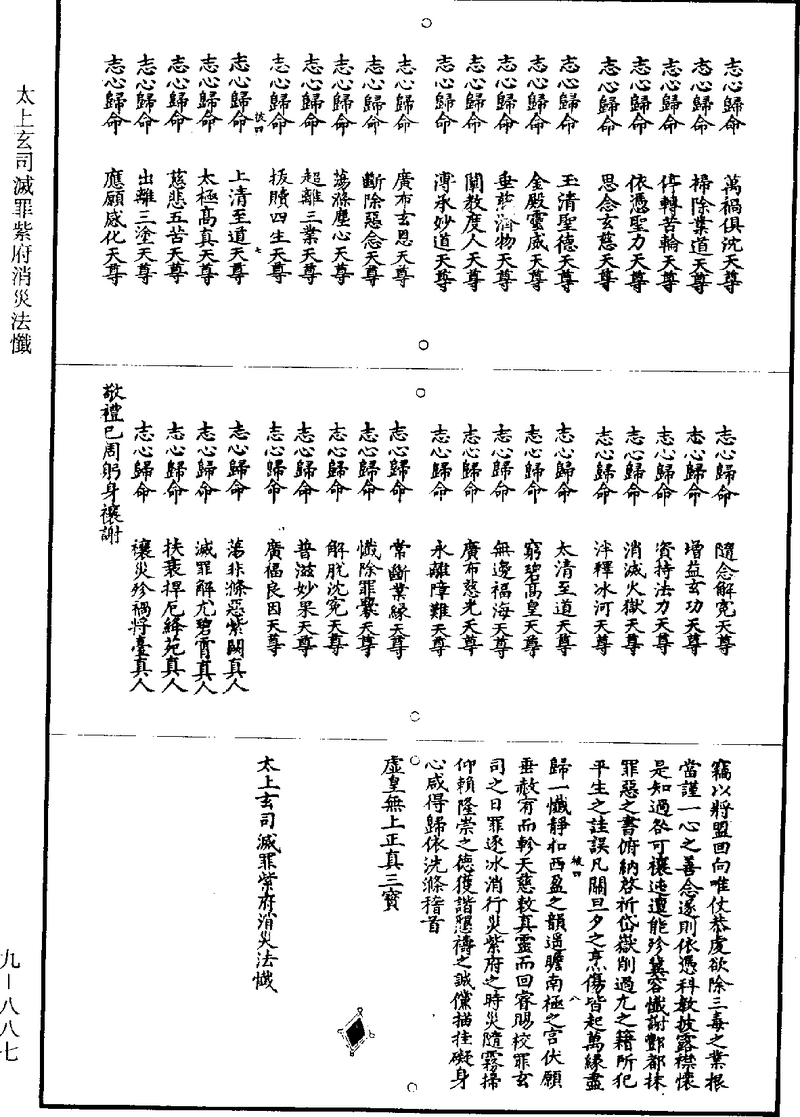 太上玄司滅罪紫府消災法懺
志心歸命　萬禍俱沈天尊
志心歸命　掃除業道天尊
志心歸命　停轉苦輪天尊
志心歸命　依憑聖力天尊
志心歸命　思念玄慈天尊
志心歸命　玉清聖德天尊
志心歸命　金殿靈威天尊
志心歸命　垂慈濟物天尊
志心歸命　闡教度人天尊
志心歸命　溥承妙道天尊
志心歸命　廣布玄恩天尊
志心歸命　斷除惡念天尊
志心歸命　蕩滌塵心天尊
志心歸命　超離三業天尊
志心歸命　拔贖四生天尊
志心歸命　上清至道天尊
志心歸命　太極高真天尊
志心歸命　慈悲五苦天尊
志心歸命　出離三塗天尊
志心歸命　應願感化天尊
志心歸命　隨念解冤天尊
志心歸命　增益玄功天尊
志心歸命　資持法力天尊
志心歸命　消滅火獄天尊
志心歸命　泮釋冰河天尊
志心歸命　太清至道天尊
志心歸命　窮碧高皇天尊
志心歸命　無邊福海天尊
志心歸命　廣布慈光天尊
志心歸命　永離障難天尊
志心歸命　常斷業緣天尊
志心歸命　懺除罪釁天尊
志心歸命　解脫沈冤天尊
志心歸命　普滋妙果天尊
志心歸命　廣福良因天尊
志心歸命　蕩非滌惡紫闕真人
志心歸命　滅罪解尤碧霄真人
志心歸命　扶衰捍厄絳苑真人
志心歸命　禳災殄禍將臺真人
敬禮已周躬身禳謝
竊以將盟回向唯仗恭虔欲除三毒之業根
當謹一心之善念遂則依憑科教披露襟懷
是知過咎可禳迍邅能殄冀容懺謝酆都抹
罪惡之書俯納啓祈岱嶽削過尤之籍所犯
平生之詿誤凡關旦夕之烹傷皆起萬緣盡
歸一懺靜扣西盈之韻遥瞻南極之宮伏願
垂赦宥而軫天慈敕真靈而回睿賜校罪玄
司之日罪逐冰消行災紫府之時災隨霧掃
仰賴隆崇之德獲諧懇禱之誠儻描挂礙身
心咸得歸依洗滌稽首
虛皇無上正真三寶
太上玄司滅罪紫府消災法懺
九－八八七